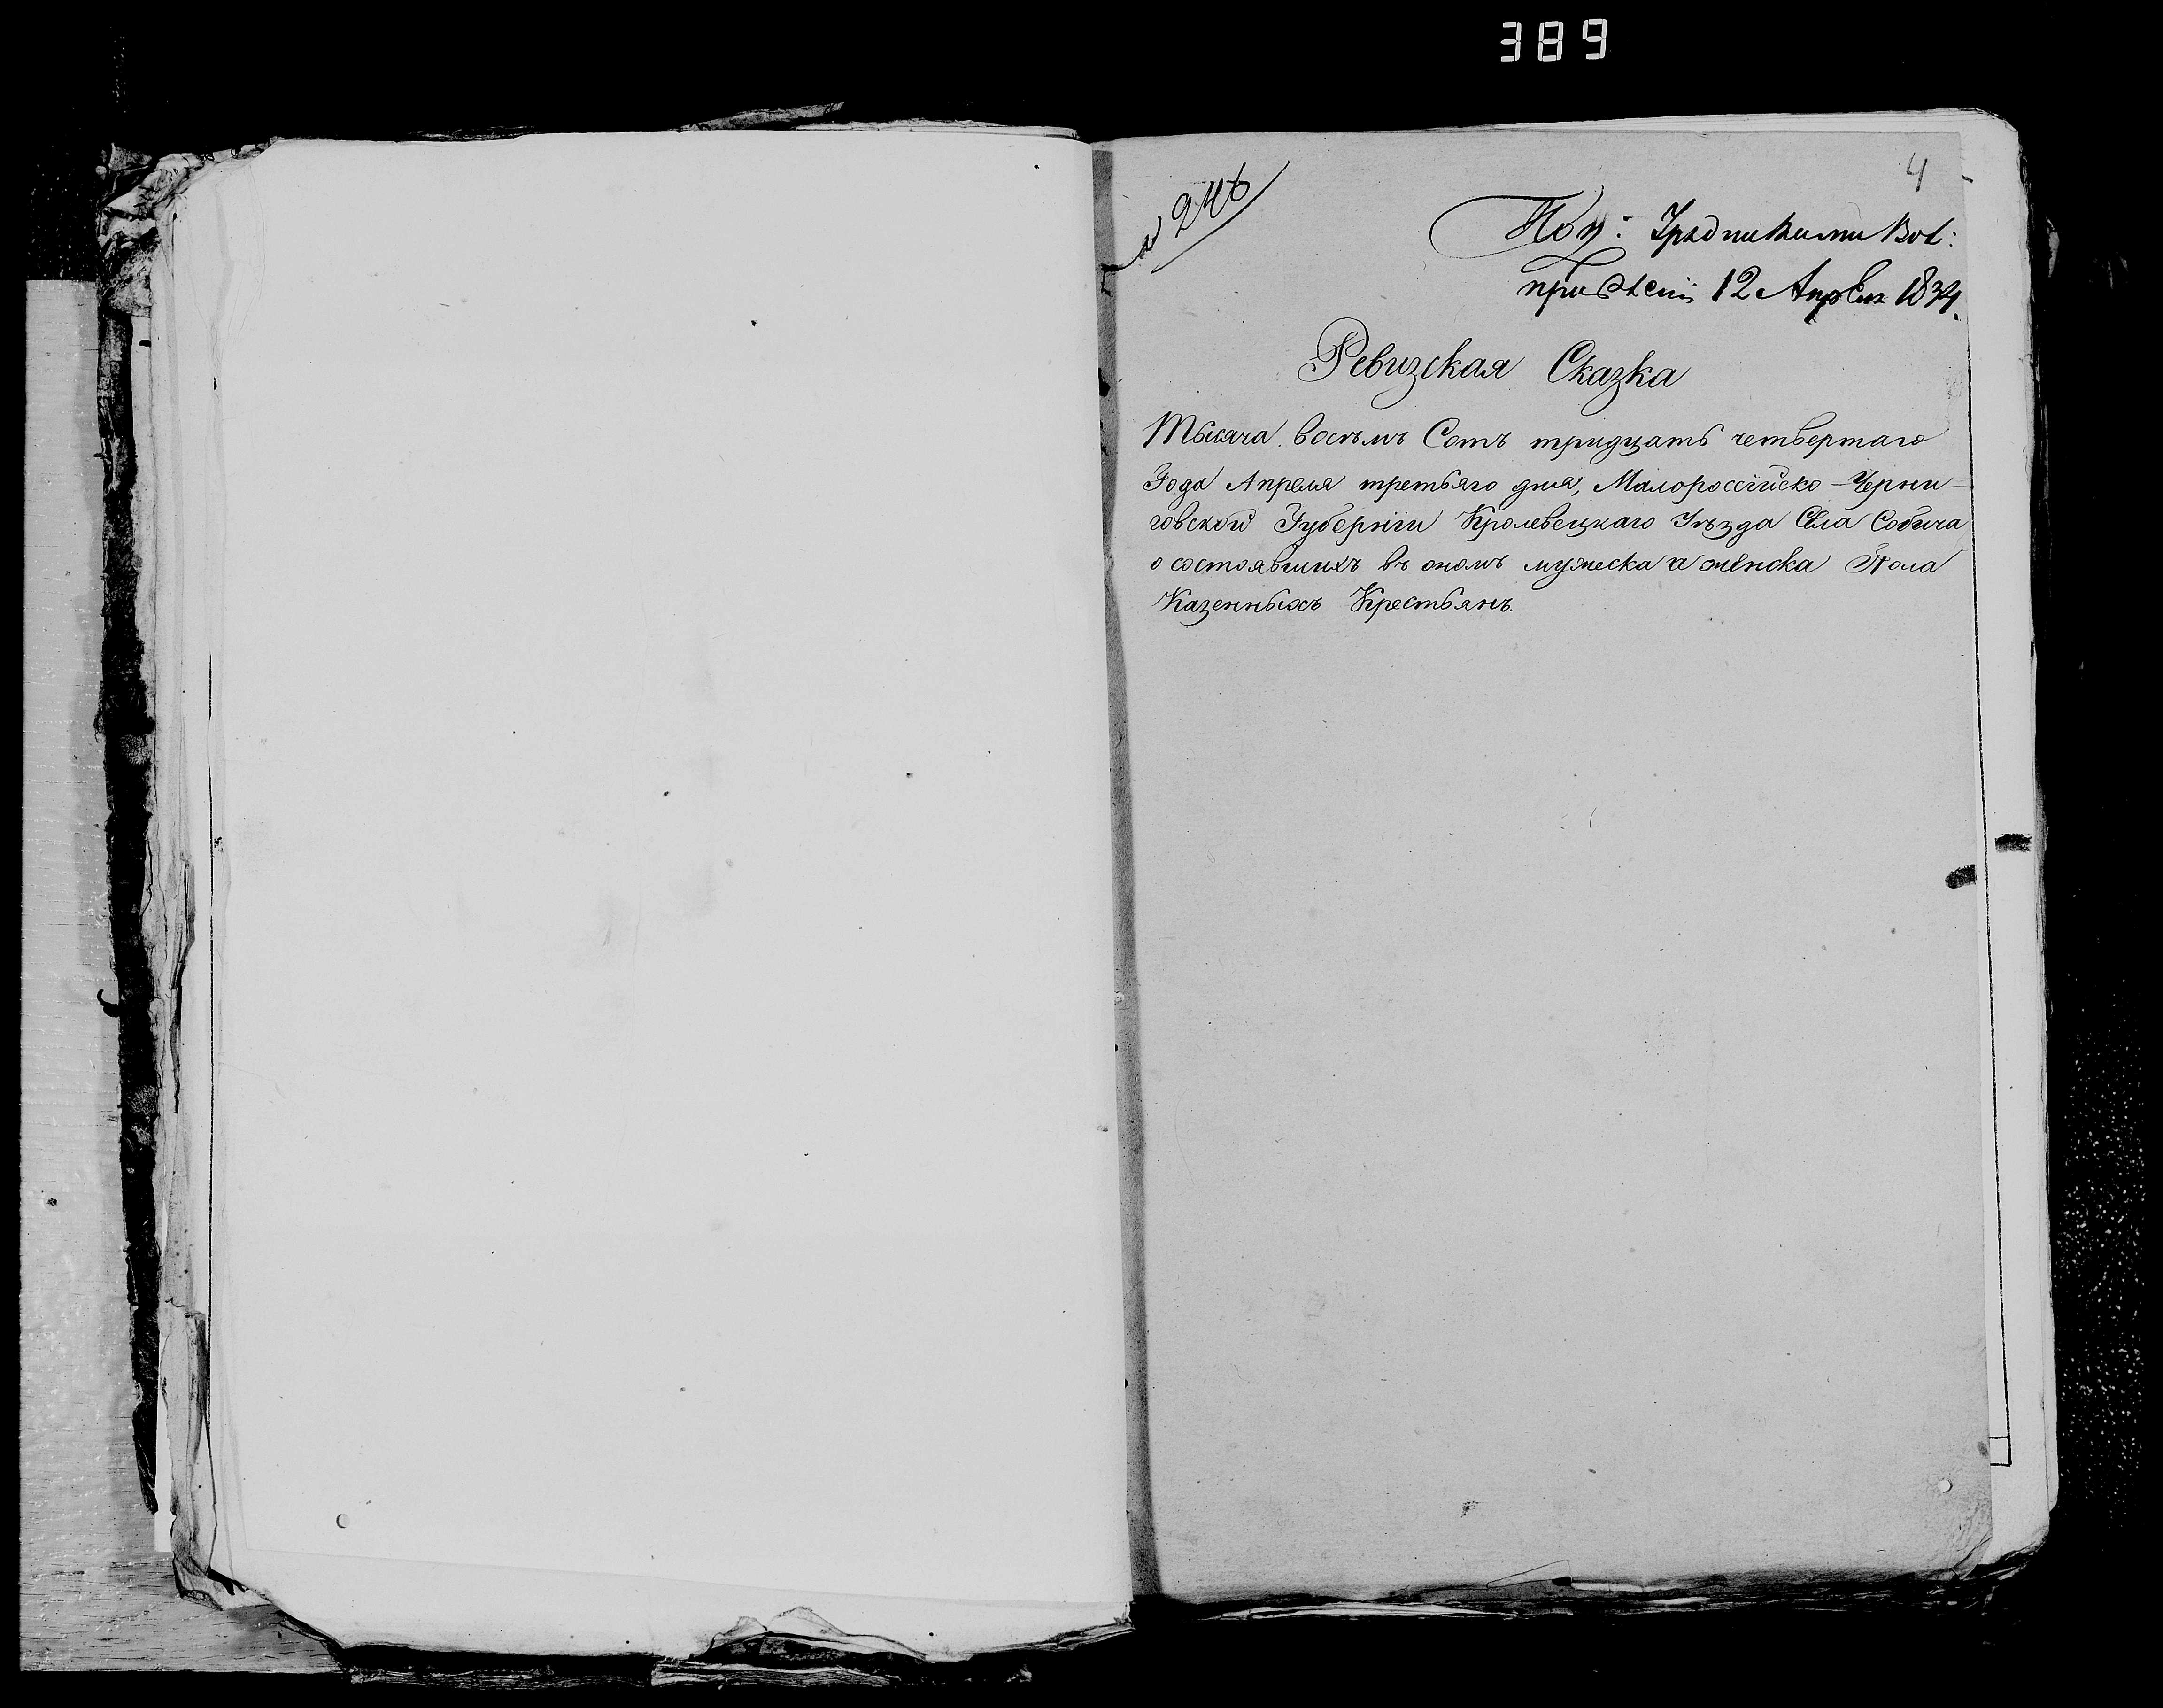 389
4
№ 246
Пол:
12 Апреля 1834.
Ревизская Сказка
Тысяча восемъ Сотъ тридцать четвертаго
Года Апреля третьяго дня, Малороссійско-Черни-
говской Губерніи Кролевецкаго Уѣзда Села Собича
о состоявшихъ въ ономъ мужеска и женска Пола
Казенныхъ Крестьянъ.